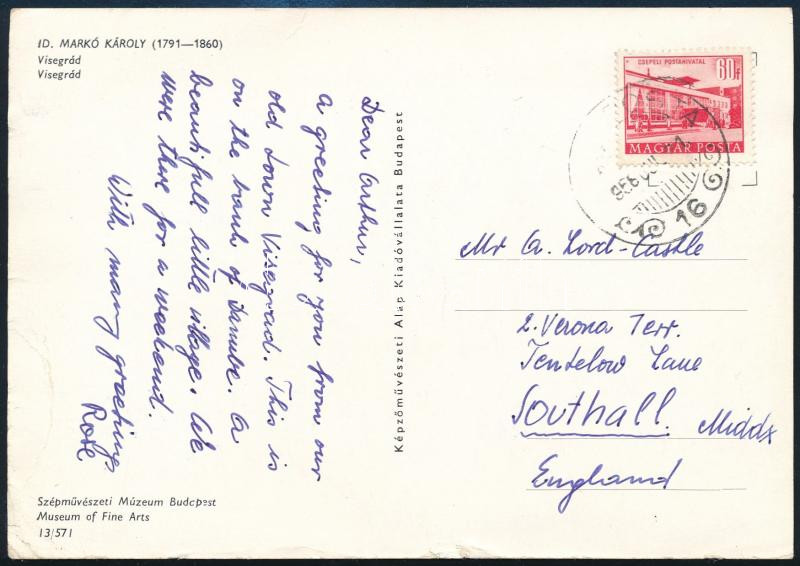 ID. MARKÓ KÁROLY (1791—1860)
Visegrád
Visegrád
Dear Arthur,
A greeting for you from our
old town Visegrad. This is
on the bank of Danube. A
beautifull little village. We
were there for a weekend.
With many greetings
Rose
Szépművészeti Múzeum Budapest
Museum of Fine Arts
13/571
Képzőművészeti Alap Kiadóvállalata Budapest
CSEPELI POSTAHIVATAL
60f
MAGYAR POSTA
16
Mr A. Lord-Castle
2. Verona Terr.
Tentelow Lane
Southall. Middx
England